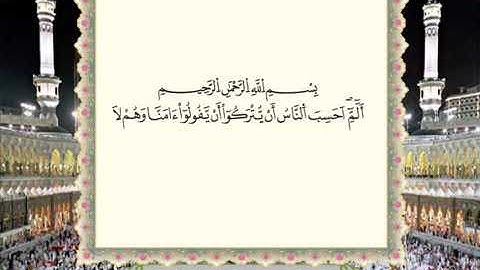 بِسْمِ اللَّهِ الرَّحْمَٰنِ الرَّحِيمِ
الٓمٓ أَحَسِبَ ٱلنَّاسُ أَن يُتْرَكُوٓا۟ أَن يَقُولُوٓا۟ ءَامَنَّا وَهُمْ لَا